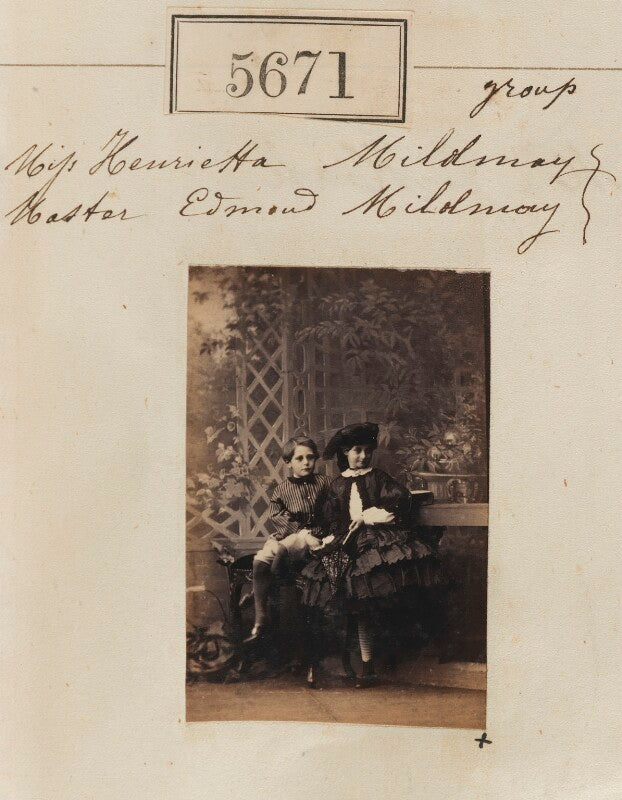 5671
group
Miss Henrietta Mildmay
Master Edmond Mildmay
+